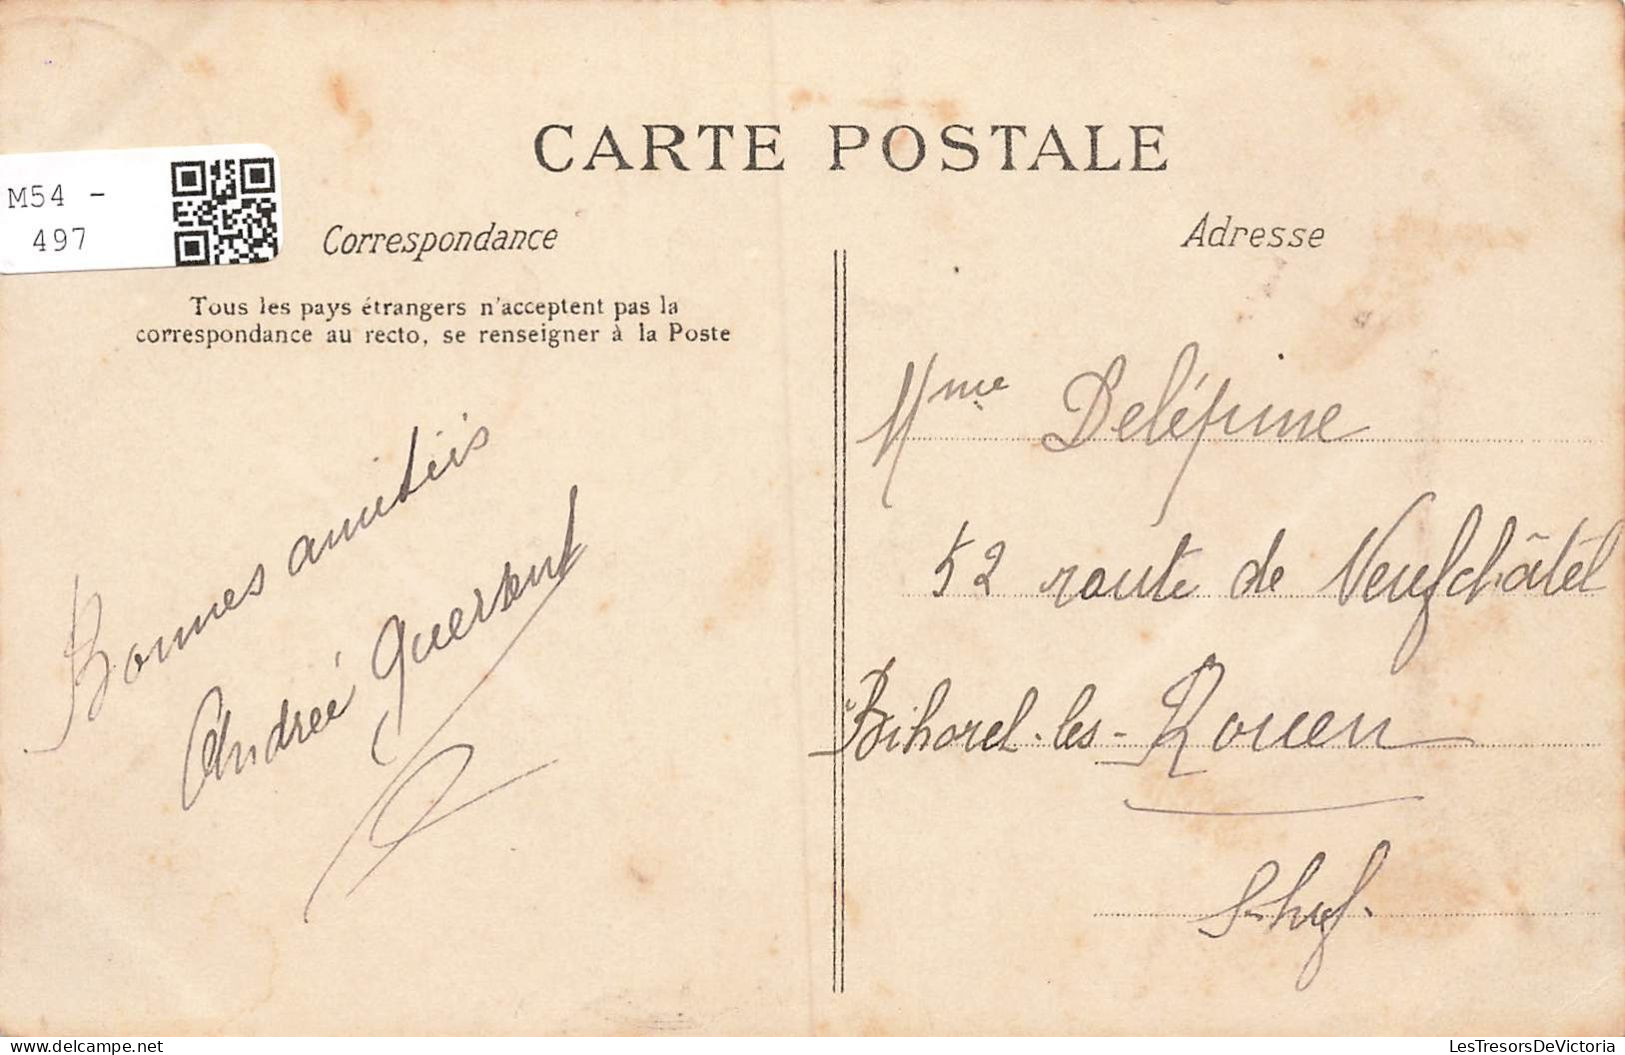 CARTE POSTALE
M54 -
497
Correspondance
Adresse
Tous les pays étrangers n'acceptent pas la
correspondance au recto, se renseigner à la Poste
Bonnes amitiés
Andrée
Mme Delépine
52 route de Neufchâtel
Bihorel-les-Rouen
S-Inf.
LesTresorsDeVictoria
https://www.delcampe.net